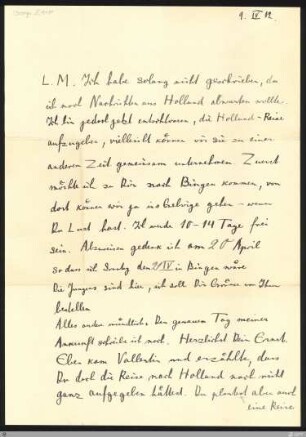 9. IV 12
L. M. Ich habe solang nicht geschrieben, da
ich noch Nachrichten aus Holland abwarten wollte.
Ich bin jetzt entschlossen, die Holland-Reise
aufzugeben, vielleicht können wir sie zu einer
anderen Zeit gemeinsam unternehmen. Zuerst
möchte ich zu Dir nach Bingen kommen, von
dort können wir ja ins Gebirge gehen – wenn
Du Lust hast. Ich werde 10-14 Tage frei
sein. Abzureisen gedenk ich am 20 April
so dass ich Sonntag den 21/IV in Bingen wäre
Die Jungens sind hier, ich soll Dir Grüsse von Ihnen
bestellen
Alles andere mündlich. Den genauen Tag meiner
Ankunft schreibe ich noch. Herzlichst Dein Ernst.
Eben kam und erzählte, dass
Du doch die Reise nach Holland noch nicht
ganz aufgegeben hättest. Du planst aber auch
eine Reise